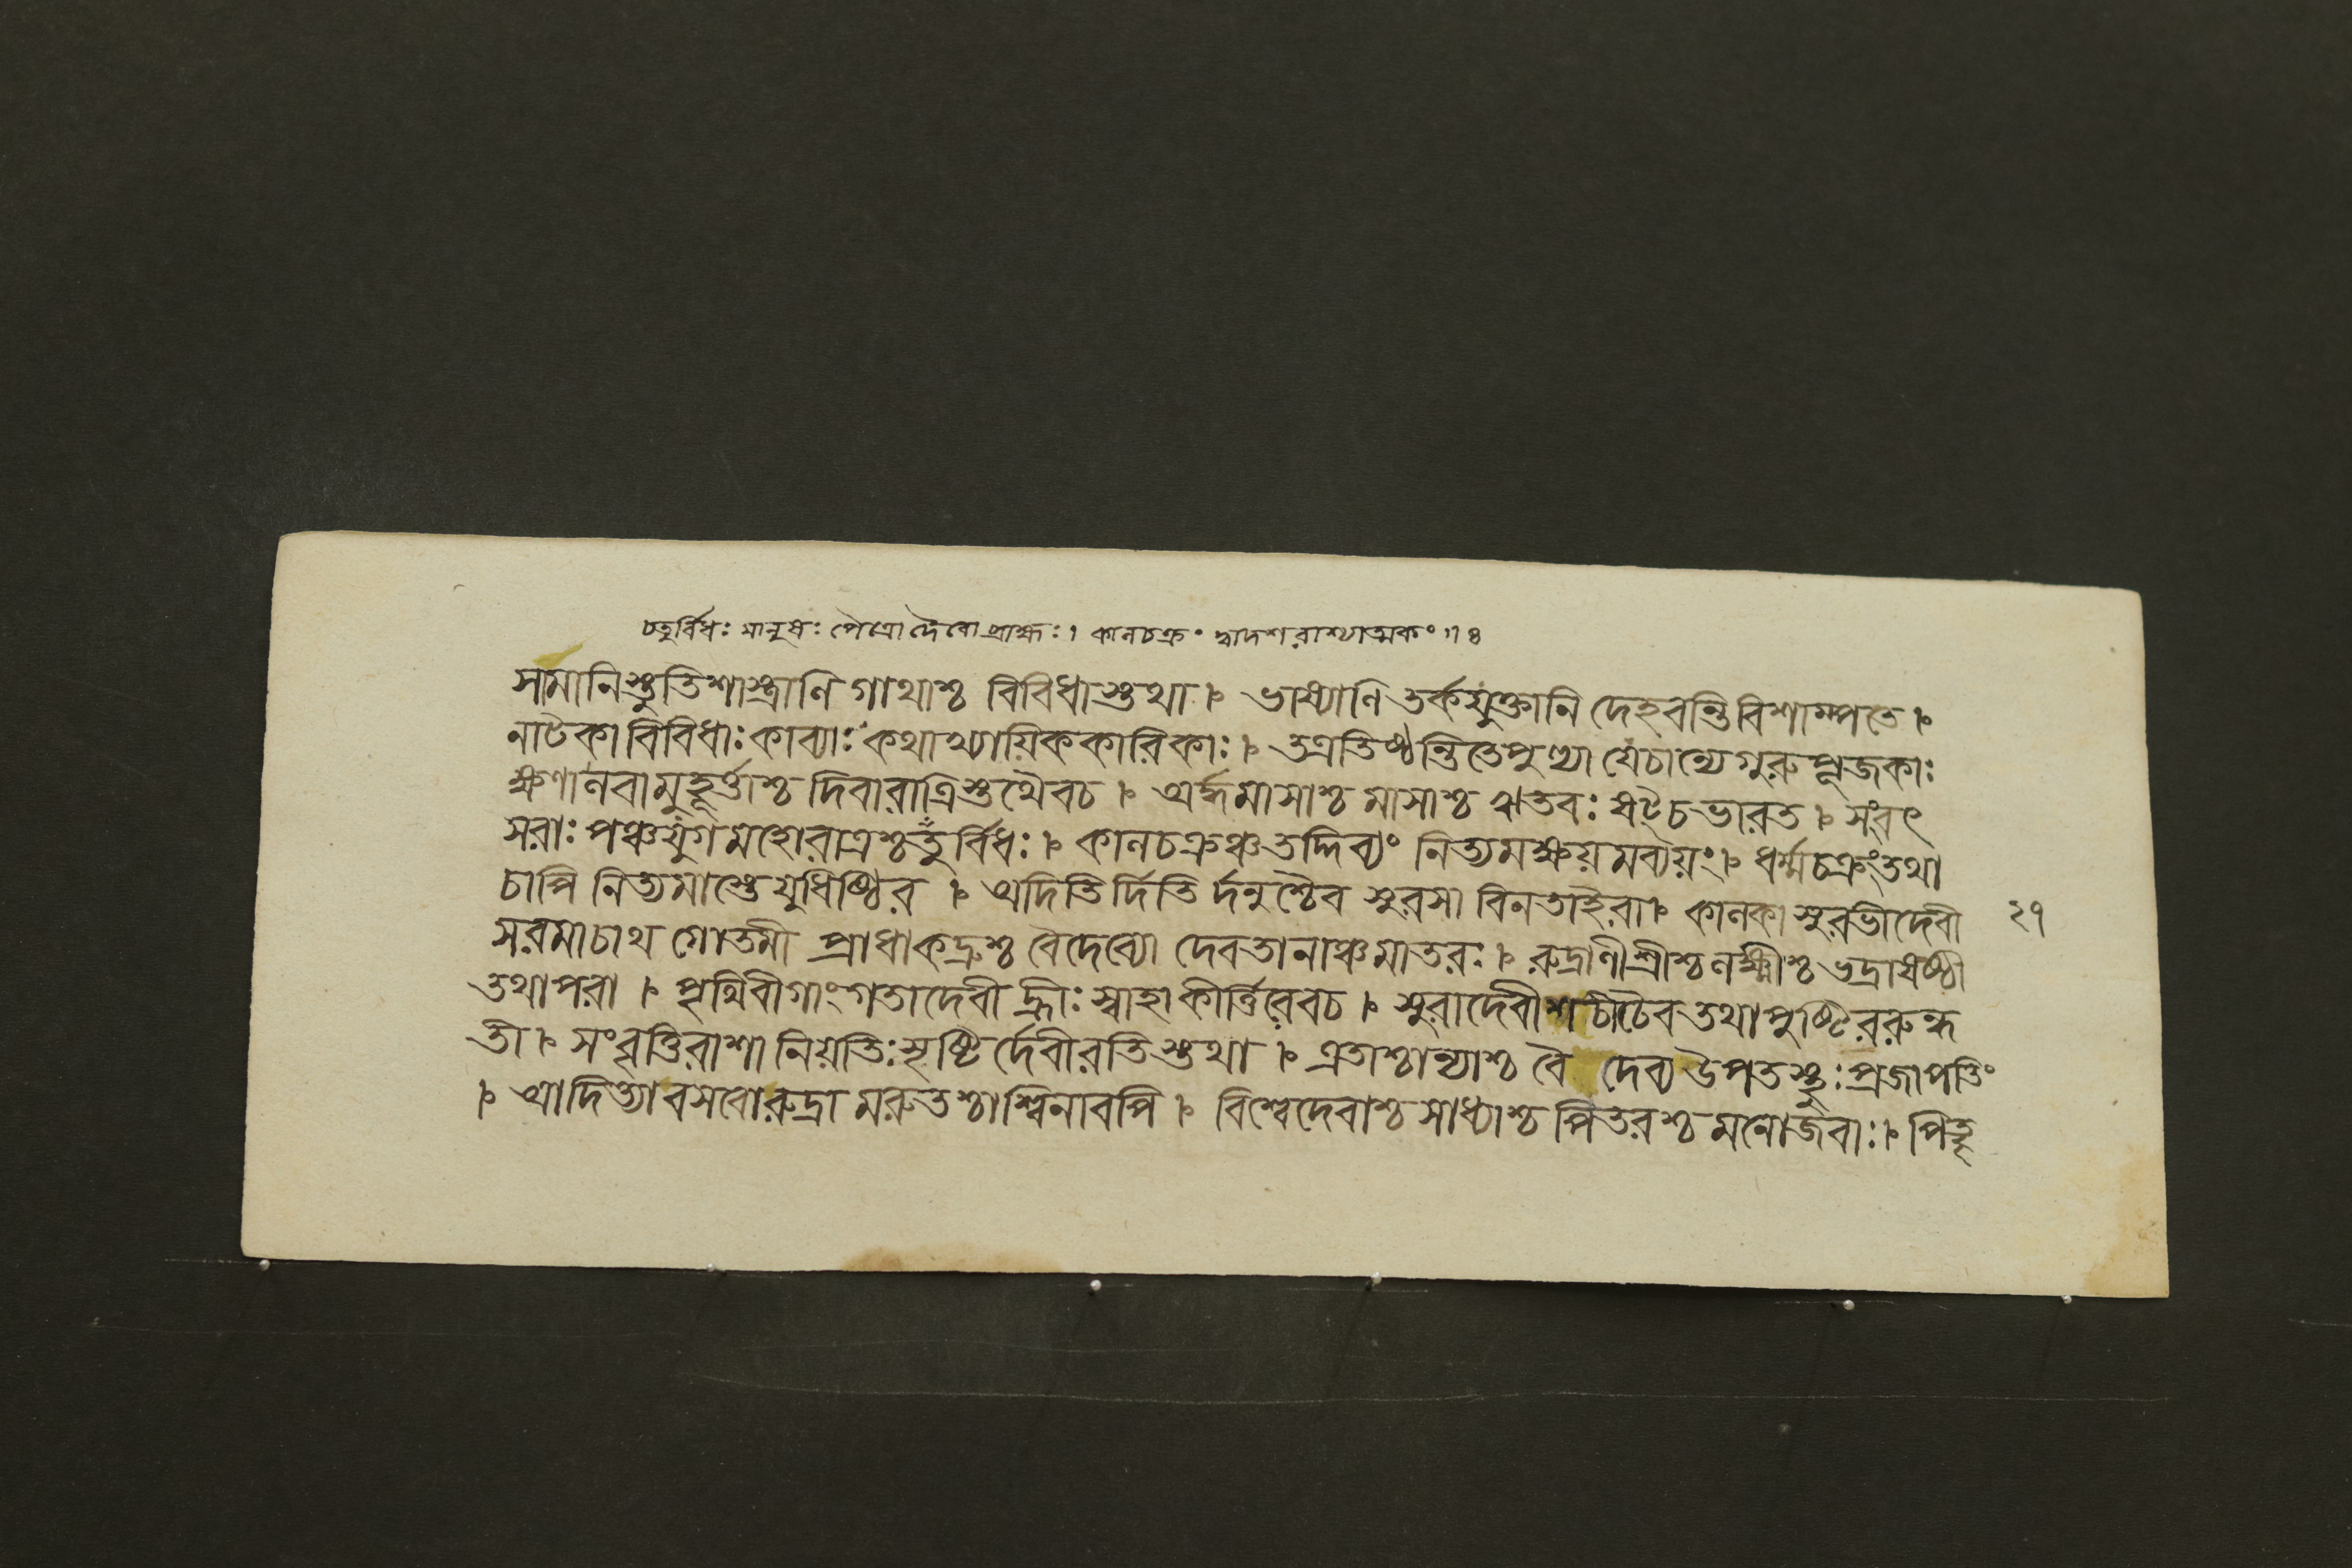 চতুর্বিধঃ মানুষঃ পৈত্রো দৈবো ব্রাহ্মঃ। কালচক্রং দ্বাদশরাশ্যাত্মকং ॥ ৪
সামানিস্তুতিশাস্ত্রাণি গাথাশ্চ বিবিধাস্তথা । ভাষ্যাণি তর্কযুক্তানি দেহবন্তি বিশাম্পতে ।
নাটকা বিবিধাঃ কাব্যাঃ কথাখ্যায়িককারিকাঃ । তত্রতিষ্ঠন্তিতেপুণ্যা যেচান্যেগুরুপূজকাঃ
ক্ষণালবামুহূর্ত্তাশ্চ দিবারাত্রিস্তথৈবচ । অর্দ্ধমাসাশ্চ মাসাশ্চ ঋতবঃ ষট্চভারত । সংবৎ
সরাঃ পঞ্চযুগমহোরাত্রশ্চতুর্বিধঃ । কালচক্রঞ্চতদ্দিব্যং নিত্যমক্ষয়মব্যয়ং । ধর্ম্মচক্রংতথা
চাপি নিত্যমাস্তেযুধিষ্ঠির । অদিতির্দিতির্দনুশ্চৈব সুরসা বিনতাইরা । কালকা সুরভীদেবী
২৭
সরমাচাথ গোতমী প্রাধাকদ্রুশ্চ বৈদেব্যো দেবতানাঞ্চমাতরঃ । রুদ্রাণীশ্রীশ্চলক্ষ্মীশ্চ ভদ্রাষষ্ঠী
তথাপরা । পৃথিবীগাংগতাদেবী হ্রীঃ স্বাহাকীর্ত্তিরেবচ । সুরাদেবীশচীচৈব তথাপুষ্টিররুন্ধ
তী । সংবৃত্তিরাশা নিয়তিঃ সৃষ্টির্দেবীরতিস্তথা । এতাশ্চান্যাশ্চ বৈ দেব্য উপতস্থুঃ প্রজাপতিং
। আদিত্যাবসবোরুদ্রা মরুতশ্চাশ্বিনাবপি । বিশ্বেদেবাশ্চ সাধ্যাশ্চ পিতরশ্চ মনোজবাঃ । পিতৃ